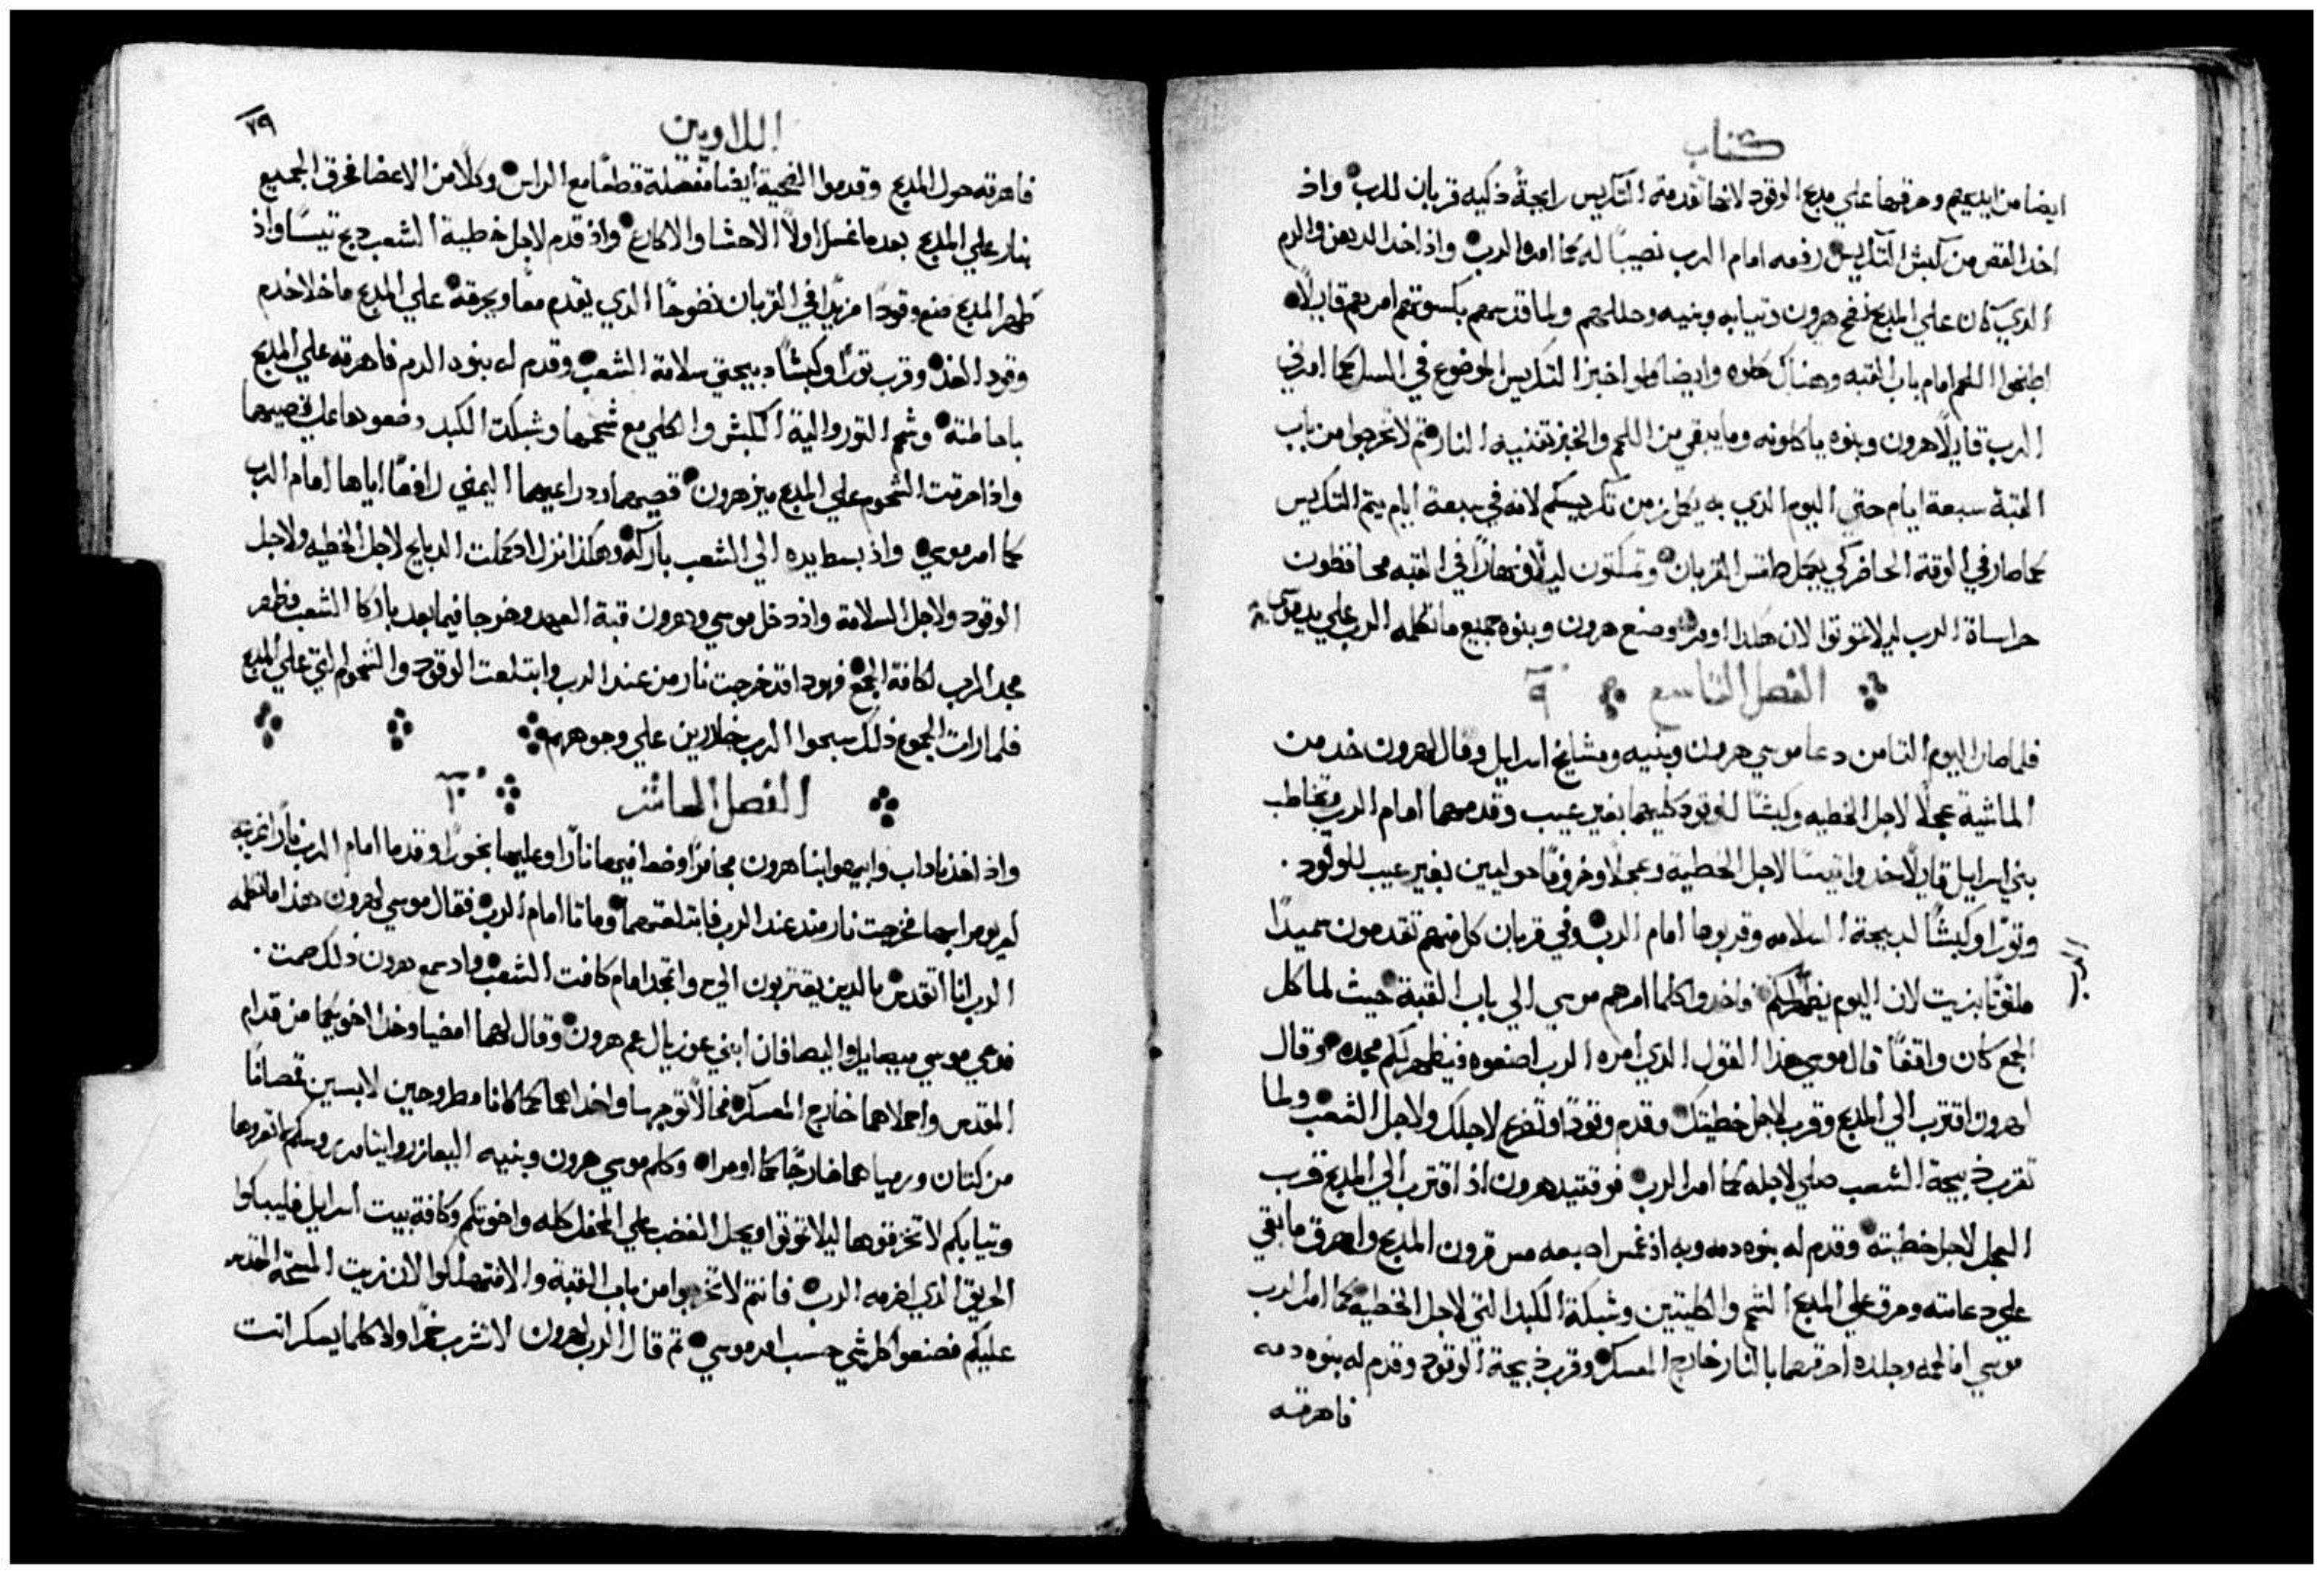 كتاب
ايضا من ايديهم وحرقها علي مدبح الوقود لانها تقدمة التكريس رايحةً ذكيه قربان للرب واذ
اخد القص من كبش التكريس رفعه امام الرب نصيبًا له كما امره الرب واذ اخد الدهن والدم
الدي كان علي المدبح نضح هرون وتيابه وبنيه وحللهم ولما قدسهم بكسوتهم امرهم قايلًا
اطبخوا اللحم امام باب القبه وهناك كلوه وايضا كلوا خبز التكريس الموضوع في السل كما امرني
الرب قايلًا هرون وبنوه ياكلونه وما يبقي من اللحم والخبز تفنيه النار تم لا تخرجوا من باب
القبة سبعة ايام حتي اليوم الدي به يكمل زمن تكريسكم لانه في سبعة ايام يتم التكريس
كما صار في الوقت الحاضر كي يكمل طقس القربان وتمكتون ليلًا ونهارًا في القبه محافظون
حراساة الرب ليلا تموتوا لان هكدا اومرت وصنع هرون وبنوه جميع ما تكلمه الرب علي يد موسي
الفصل التاسع ٩
فلما صار اليوم التامن دعا موسي هرون وبنيه ومشايخ اسرايل وقال لهرون خد من
الماشية عجلًا لاجل الخطيه وكبشًا للوقود كليهما بغير عيب وقدمهما امام الرب وتخاطب
بني اسرايل قايلًا خدوا تيسًا لاجل الخطية وعجلًا وخروفًا حوليين بغير عيب للوقود
وتورًا وكبشًا لدبيحة السلامه وقربوها امام الرب وفي قربان كل منهم تقدمون سميدًا
ملتوتًا بزيت لان اليوم يظهر لكم فاخدوا كلما امرهم موسي الي باب القبة حيث لما كل
الرب
الجمع كان واقفًا قال موسي هذا القول الدي امره الرب اصنعوه فيظهر لكم مجده وقال
لهرون اقترب الي المدبح وقرب لاجل خطيتك وقدم وقودًا وتضرع لاجلك ولاجل الشعب ولما
تقرب دبيحة الشعب صلي لاجله كما امر الرب فوقتيد هرون اذ اقترب الي المدبح قرب
العجل لاجل خطيته وقدم له بنوه دمه وبه اذ غمس اصبعه مس قرون المدبح واهرق ما بقي
علي دعامته وحرق علي المدبح الشحم والكليتين وشبكة الكبد التي لاجل الخطيه كما امر الرب
موسي اما لحمه وجلده احرقهما بالنار خارج المعسكر وقرب دبيحة الوقود وقدم له بنوه دمه
فاهرقه
اللاويين
٧٩
فاهرقه حول المدبح وقدموا الضحية ايضا مفصلة قطعًا مع الراس وكلًا من الاعضا فحرق الجميع
بنار علي المدبح بعدما غسل اولًا الاحشا والاكارع واذ قدم لاجل خطية الشعب دبح تيسًا واذ
طهر المدبح صنع وقودًا مزيدًا في القربان نضوحًا الدي يقدم معًا ويحرقه علي المدبح ما خلا خدم
وقود الغد وقرب تورًا وكبشًا دبيحتي سلامة الشعب وقدم له بنوه الدم فاهرقه علي المدبح
باحاطته وشحم التور والية الكبش والكلي مع شحمها وشبكة الكبد وضعوها علي قصيهما
واذ احرقت الشحوم علي المدبح ميز هرون قصيهما ودراعيهما اليمني رافعًا اياها امام الرب
كما امر موسي واذ بسط يده الي الشعب باركه وهكدا نزل اد كملت الدبايح لاجل الخطيه ولاجل
الوقود ولاجل السلامة واذ دخل موسي وهرون قبة العهد وخرجا فيما بعد باركا الشعب فظهر
مجد الرب لكافة الجمع فهودا قد خرجت نار من عند الرب وابتلعت الوقود والشحوم التي علي المدبح
فلما رات الجموع ذلك سبحوا الرب خارين علي وجوههم
الفصل العاشر ١٠
واذ اخذ ناداب وابيهو ابنا هرون مجامرًا وضعا فيها نارًا وعليها بخورًا وقدما امام الرب نارًا غريبه
لم يومرا بها فخرجت نار من عند الرب فابتلعتهما وماتا امام الرب فقال موسي لهرون هذا ما تكلمه
الرب انا اتقدس بالدين يقتربون الي واتمجد امام كافت الشعب واد سمع هرون ذلك صمت
فدعي موسي ميصايل واليصافان ابني عوزيال عم هرون وقال لهما امضيا وخدا اخويكما من قدام
المقدس واحملاهما خارج المعسكر فحالًا توجها واخداهما كما كانا مطروحين لابسين قمصانًا
من كتان ورمياهما خارجًا كما اومرا وكلم موسي هرون وبنيه اليعازر وايتامر روسكم لا تعروها
وتيابكم لا تخرقوها ليلا تموتوا ويحل الغضب علي المحفل كله واخوتكم وكافة بيت اسرايل فليبكوا
الحريق الدي اضرمه الرب فانتم لا تخرجوا من باب القبة والا فتهلكوا لان زيت المسحة المقدسه
عليكم فصنعوا كل شي حسب امر موسي تم قال الرب لهرون لا تشرب خمرًا ولا كلما يسكر انت